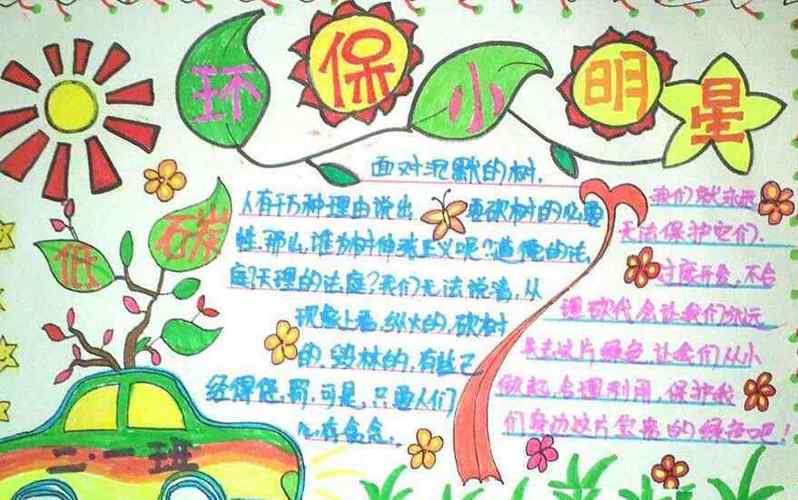 环保小明星
低碳
二·二班
面对沉默的树,
人有千万种理由说出 要砍树的必要
性,那么,谁为树伸张正义呢?道德的法
庭?天理的法庭?我们无法说清,从
现象上看,纵火的,砍树
的,毁林的,有些已
经得惩罚,可是,只要人们
心存贪念,
我们就永远
无法保护它们.
过度开垦,不合
理砍伐会让我们永远
失去这片绿色,让我们从小
做起,合理利用,保护我
们身边这片宝贵的绿荫吧!